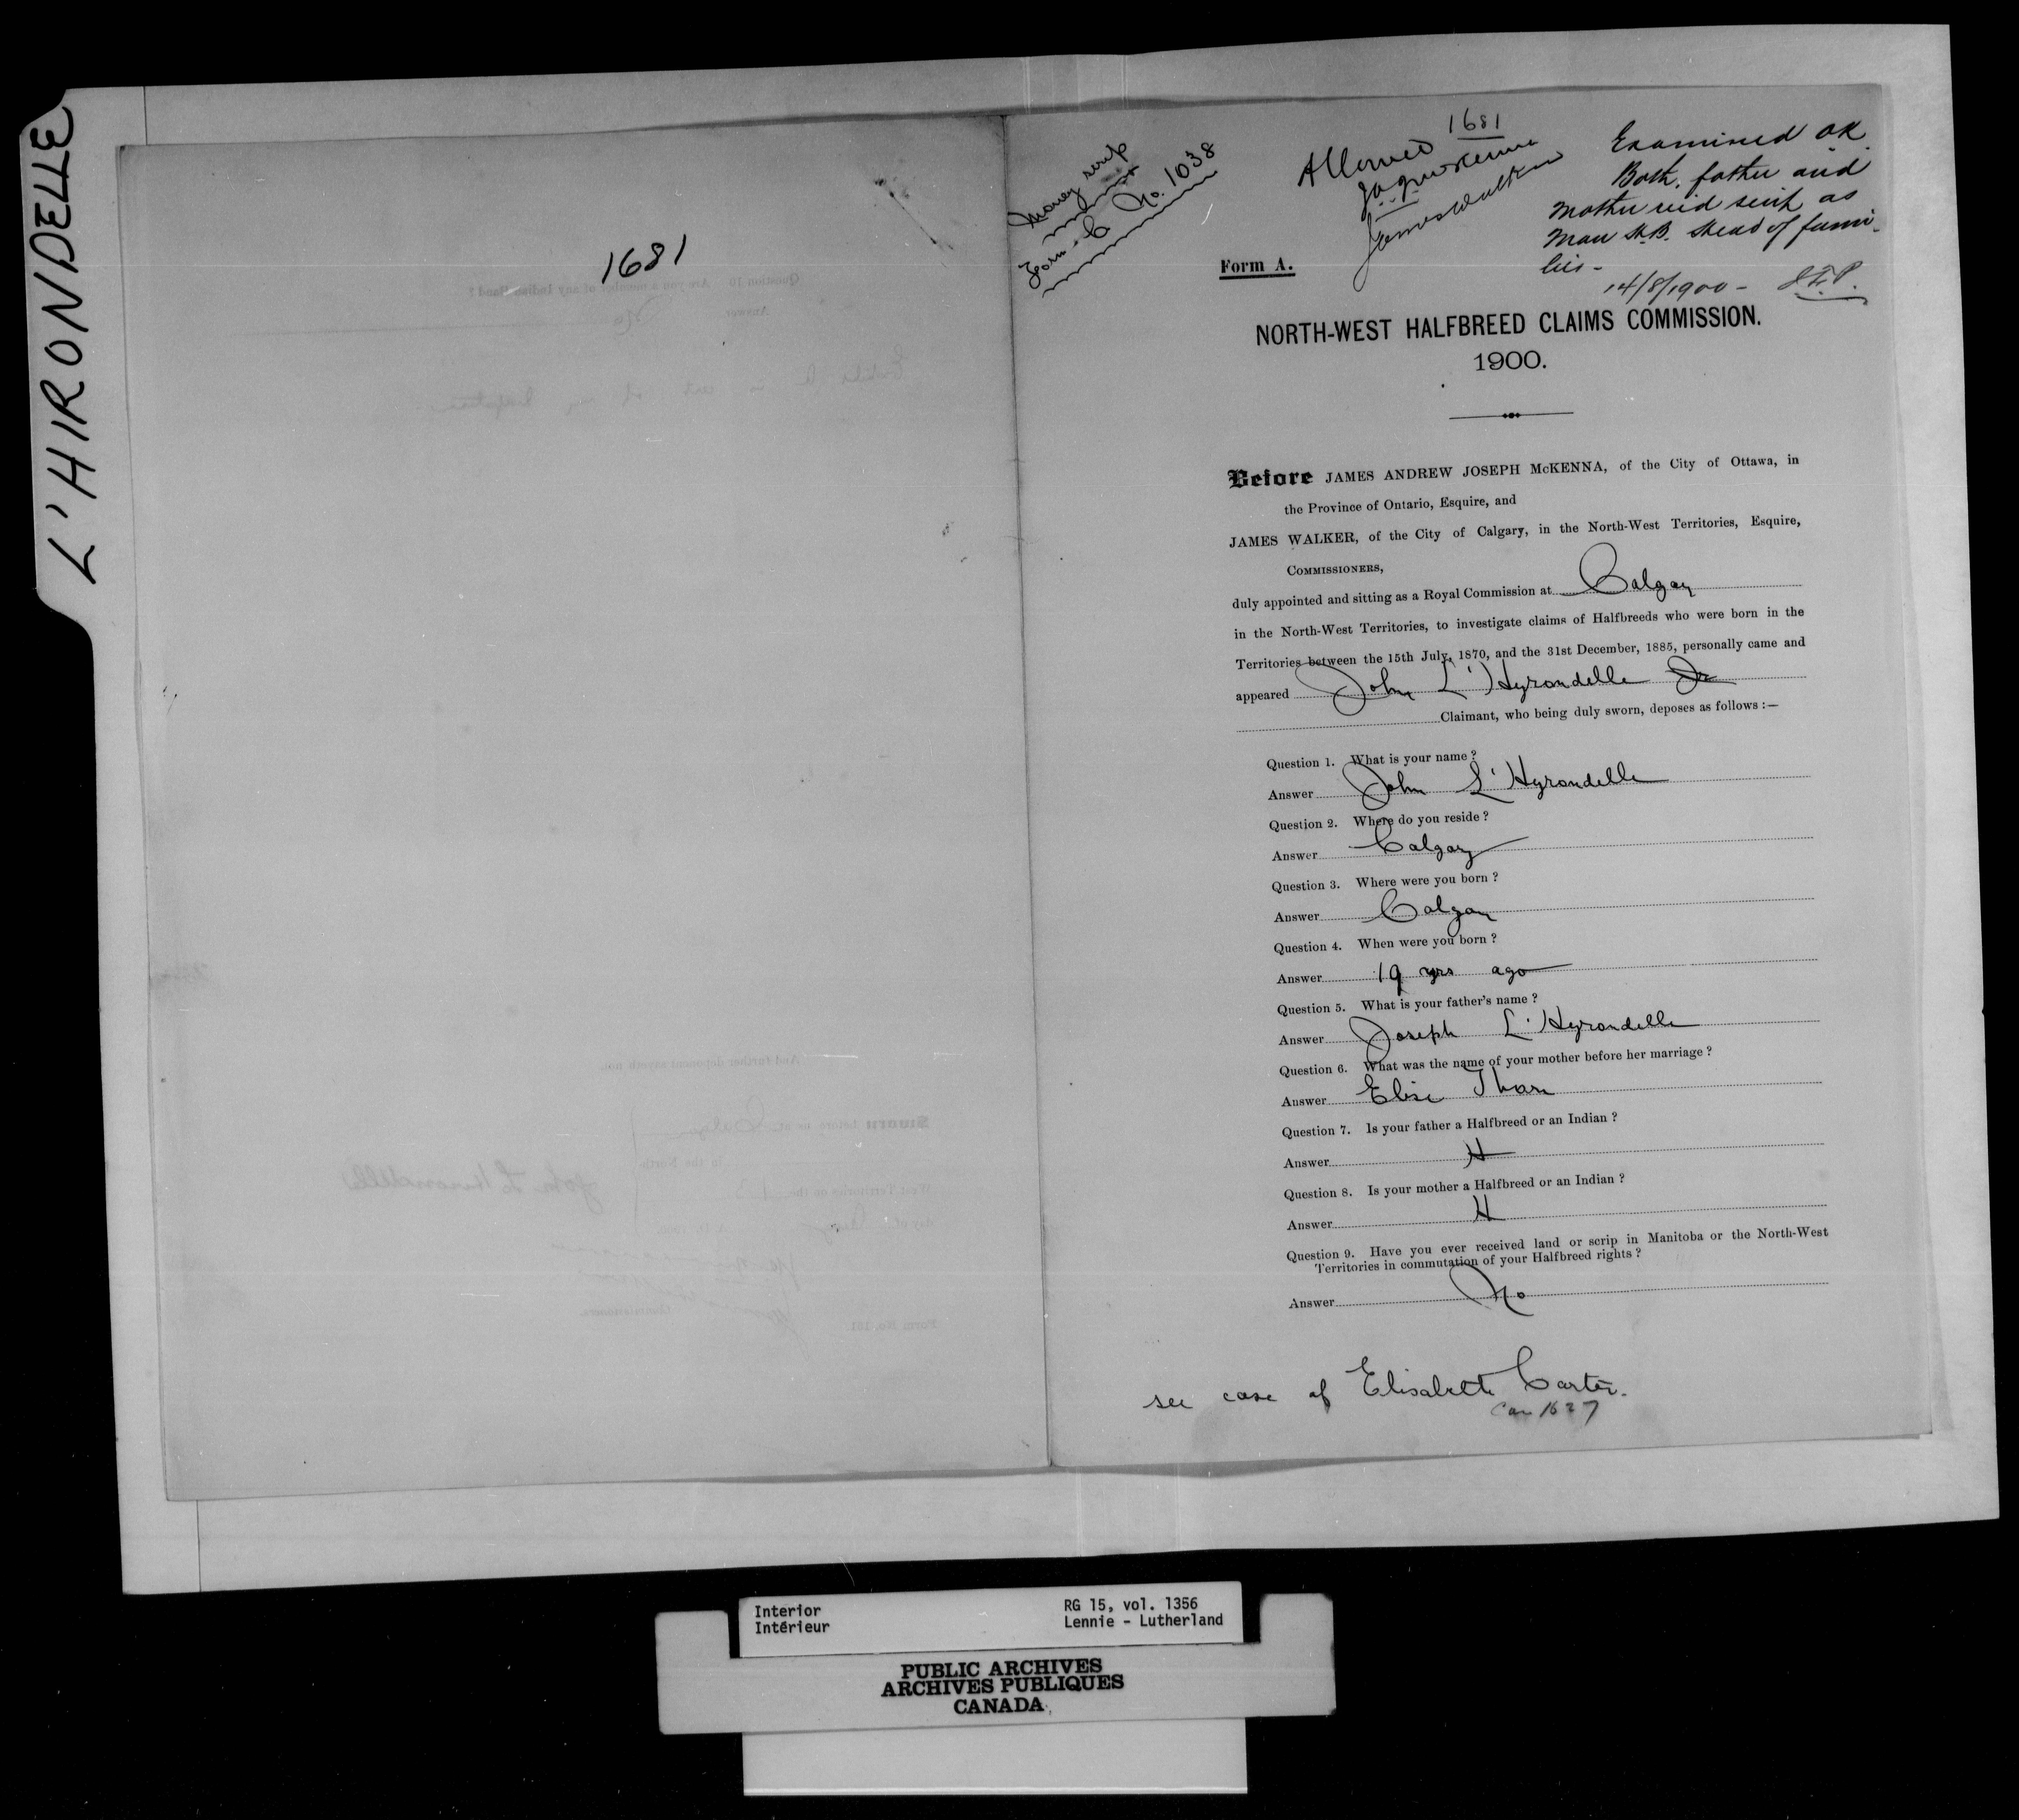 L'HIRONDELLE
1681
Money scrip
Form C No. 1038
1681
Allowed
JAJ McKenna
James Walker
Examined OK
Both father and
mother rec'd scrip as
Man H.B. Head of fami-
lies -
14/8/1900 - J.F.P.
Form A.
NORTH-WEST HALFBREED CLAIMS COMMISSION.
1900.
Before JAMES ANDREW JOSEPH McKENNA, of the City of Ottawa, in
the Province of Ontario, Esquire, and
JAMES WALKER, of the City of Calgary, in the North-West Territories, Esquire,
COMMISSIONERS,
duly appointed and sitting as a Royal Commission at Calgary
in the North-West Territories, to investigate claims of Halfbreeds who were born in the
Territories between the 15th July, 1870, and the 31st December, 1885, personally came and
appeared John L'Hyrondelle Jr
Claimant, who being duly sworn, deposes as follows :—
Question 1. What is your name ?
Answer John L'Hyrondelle
Question 2. Where do you reside ?
Answer Calgary
Question 3. Where were you born ?
Answer Calgary
Question 4. When were you born ?
Answer 19 yrs ago
Question 5. What is your father's name ?
Answer Joseph L'Hyrondelle
Question 6. What was the name of your mother before her marriage ?
Answer Elise
Question 7. Is your father a Halfbreed or an Indian ?
Answer H
Question 8. Is your mother a Halfbreed or an Indian ?
Answer H
Question 9. Have you ever received land or scrip in Manitoba or the North-West
Territories in commutation of your Halfbreed rights ?
Answer No
see case of Elisabeth Carter.
Can 1627
Interior
Intérieur
RG 15, vol. 1356
Lennie - Lutherland
PUBLIC ARCHIVES
ARCHIVES PUBLIQUES
CANADA